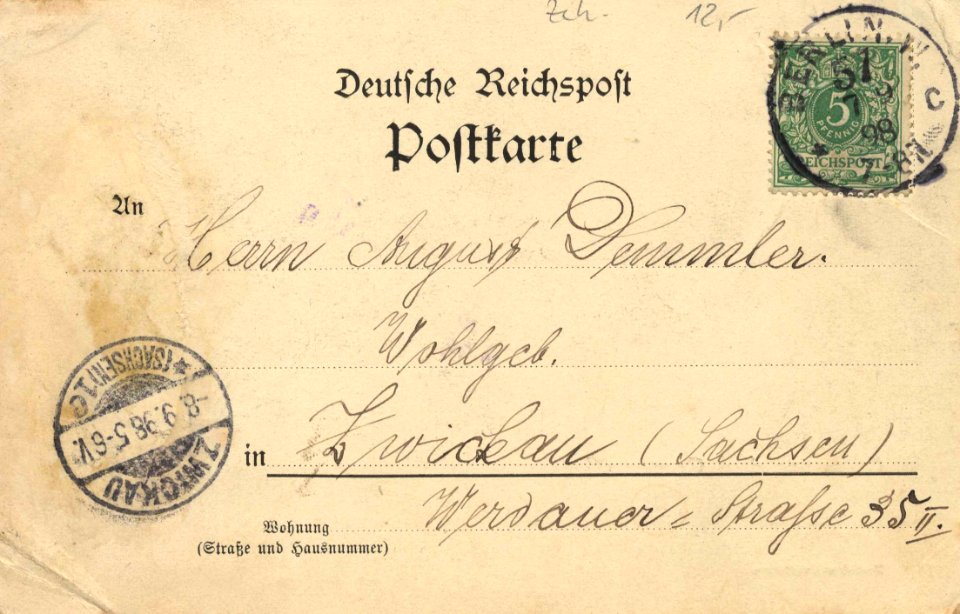 Zch. 12,-
BERLIN. W.
51
7 9
98
7-8N
C
5
PFENNIG
REICHSPOST
Deutsche Reichspost
Postkarte
An
Herrn August Demmler.
Wohlgeb.
in Zwickau (Sachsen)
Werdauer-Strasse 35 II.
Wohnung
(Straße und Hausnummer)
ZWICKAU
-8.9.98.5-6V.
*(SACHSEN)1e